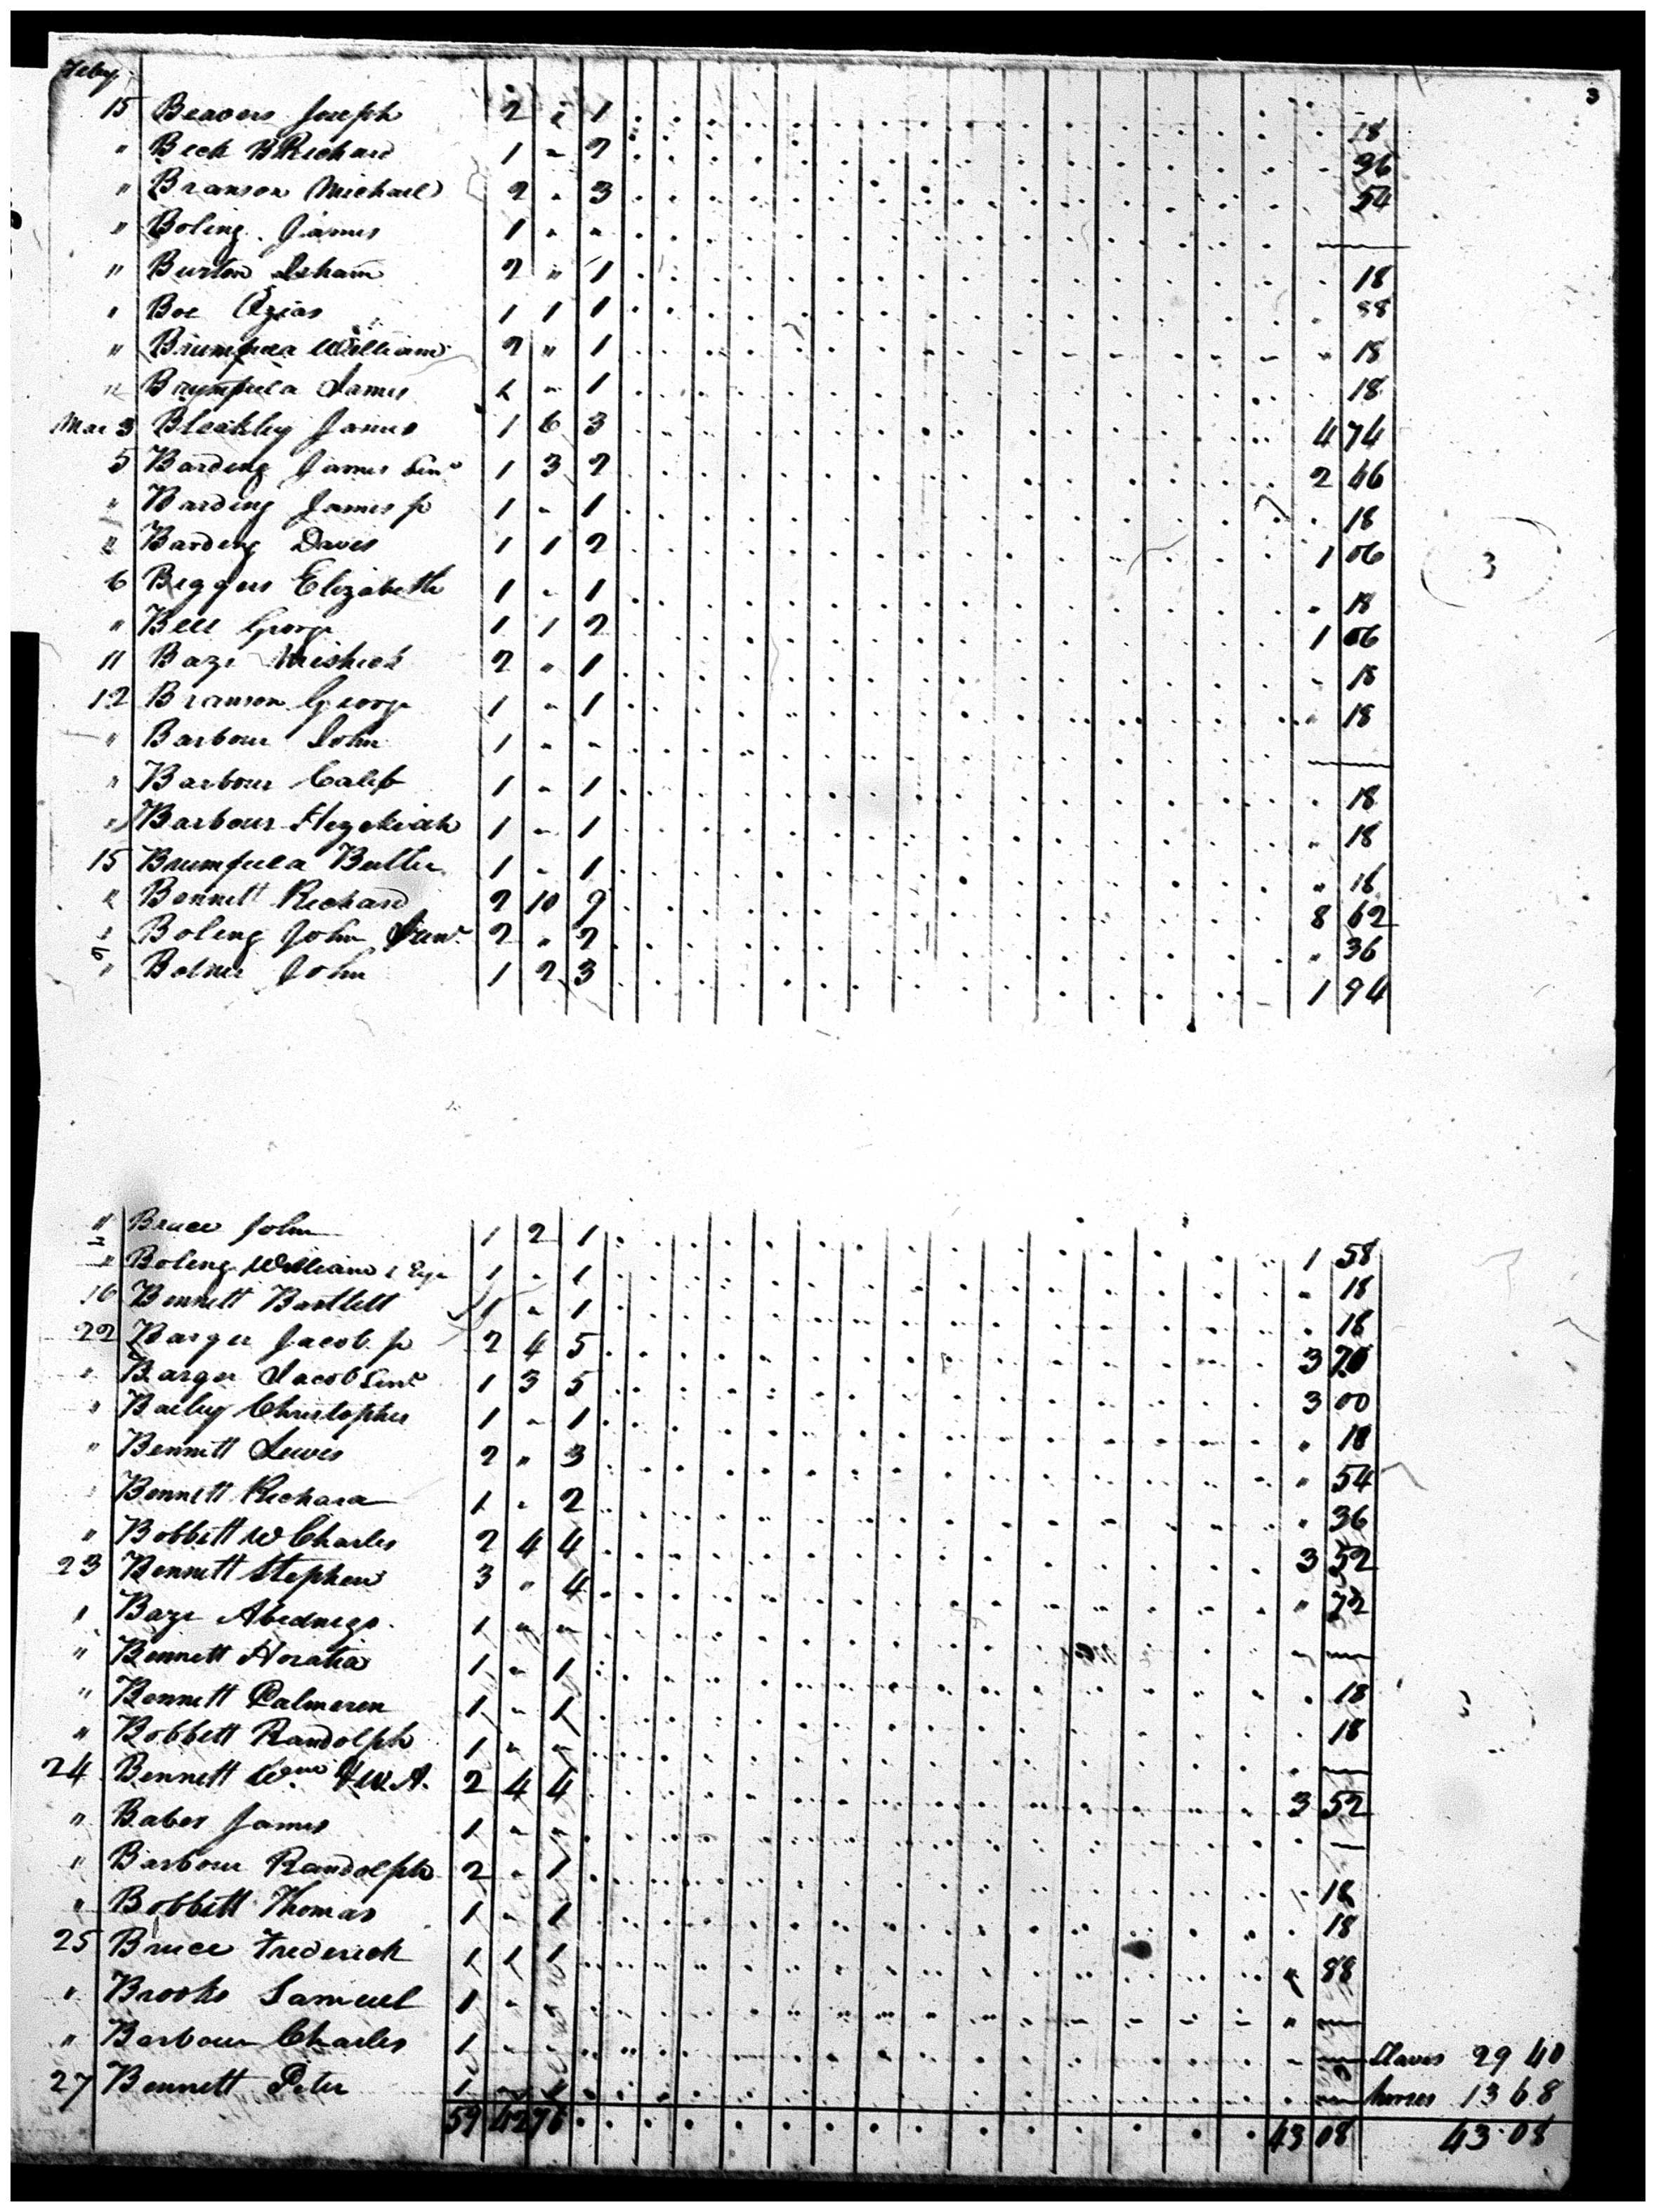 Feby 3
15 Beavers Joseph 2 " 1 18
" Beck B Richard 1 " 2 36
" Branson Michael 2 " 3 54
" Boling James 1 " " —
" Burton Isham 2 " 1 18
" Boe Ozias 1 1 1 88
" William 2 " 1 18
" James 2 " 1 18
Mar 3 Bleakley James 1 6 3 4 74
5 Barding James Senr 1 3 2 2 46
" Barding James jr 1 " 1 18
" Barding Davis 1 1 2 1 06
6 Biggers Elizabeth 1 " 1 " 18
" Bell George 1 1 2 1 06
11 Baze Meshick 2 " 1 " 18
12 Branson George 1 " 1 " 18
" Barbour John 1 " " —
" Barbour Caleb 1 " 1 18
" Barbour Hezekiah 1 " 1 " 18
15 Butler 1 " 1 " 18
" Bennett Richard 2 10 9 8 62
" Boling John Senr 2 " 2 " 36
" John 1 2 3 1 94
3
" Bruce John 1 2 1 1 58
" Boling William 1 " 1 " 18
16 Bennett Bartlett 1 " 1 " 18
22 Barger Jacob jr 2 4 5 3 70
" Barger Jacob Senr 1 3 5 3 00
" Bailey Christopher 1 " 1 " 18
" Bennett Lewis 2 " 3 " 54
" Bennett Richard 1 " 2 " 36
" Bobbett W Charles 2 4 4 3 52
23 Bennett Stephen 3 " 4 " 72
" Baze Abednego 1 " " " —
" Bennett Horatio 1 " 1 " 18
" Bennett Palmeren 1 " 1 18
" Bobbett Randolph 1 " " —
24 Bennett Wm H W. A. 2 4 4 3 52
" Baber James 1 " " —
" Barbour Randolph 2 " 1 " 18
" Bobbett Thomas 1 " 1 18
25 Bruce Frederick 1 1 1 " 88
" Brooks Samuel 1 " " " —
" Barbour Charles 1 " " " — Slaves 29 40
27 Bennett Peter 1 " 1 " — horses 13 68
59 42 76 43 08 43.08